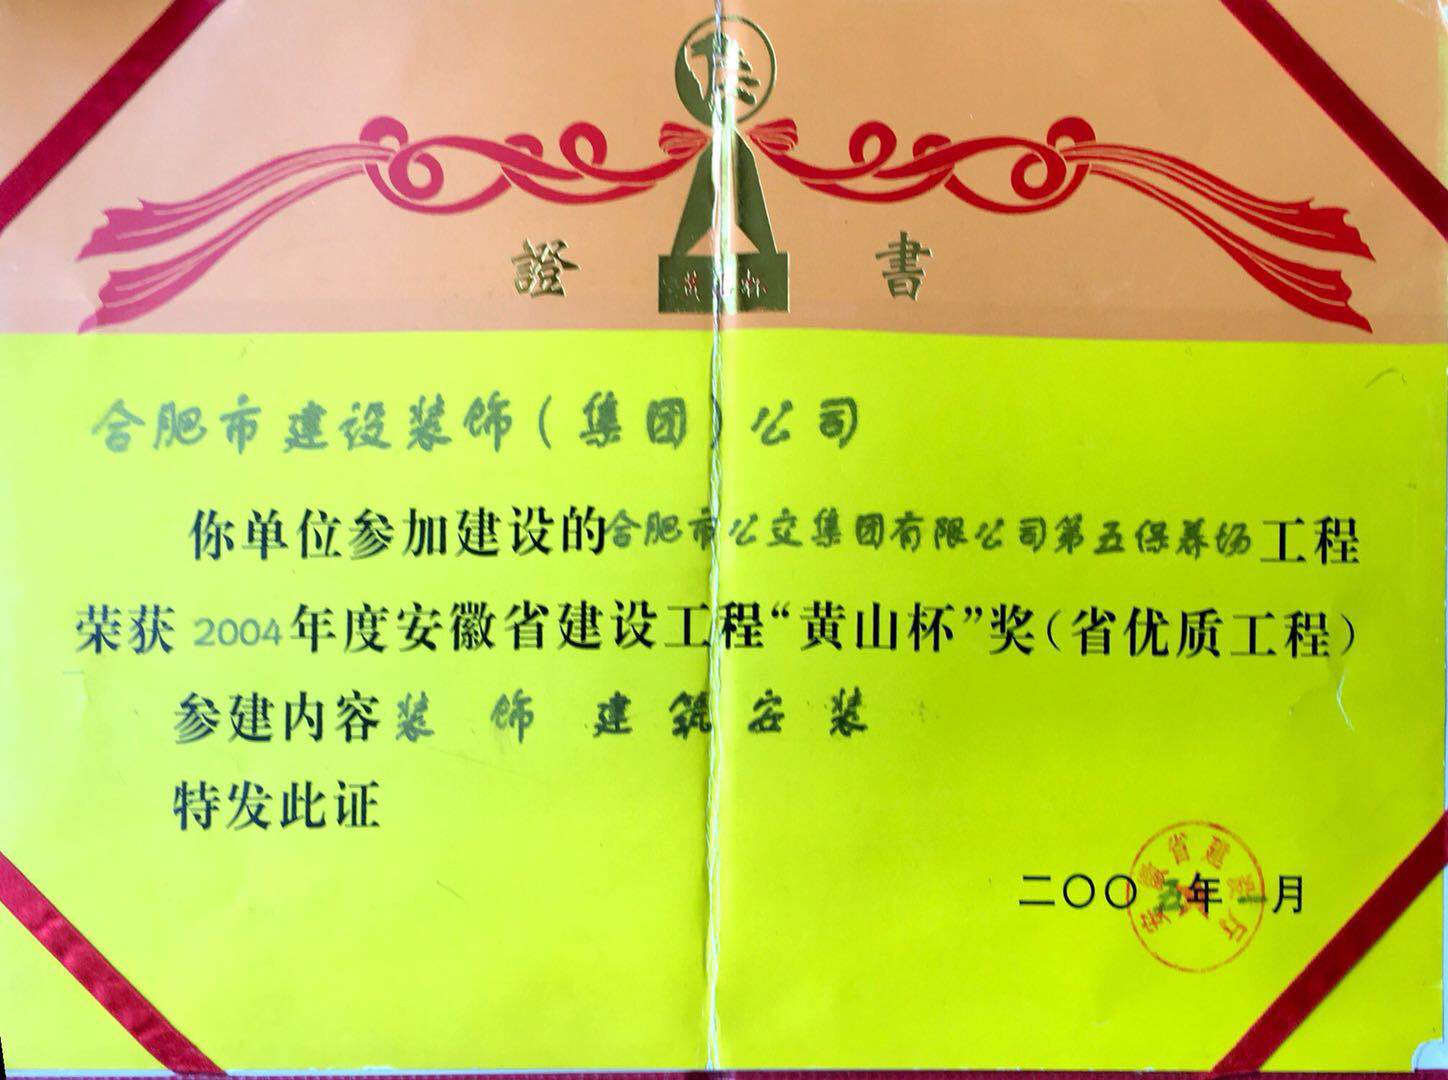 證 書
黄山杯
合肥市建设装饰（集团）公司
你单位参加建设的合肥市公交集团有限公司第五保养场工程
荣获2004年度安徽省建设工程“黄山杯”奖（省优质工程）
参建内容装饰建筑安装
特发此证
安徽省建设厅
二〇〇五年一月